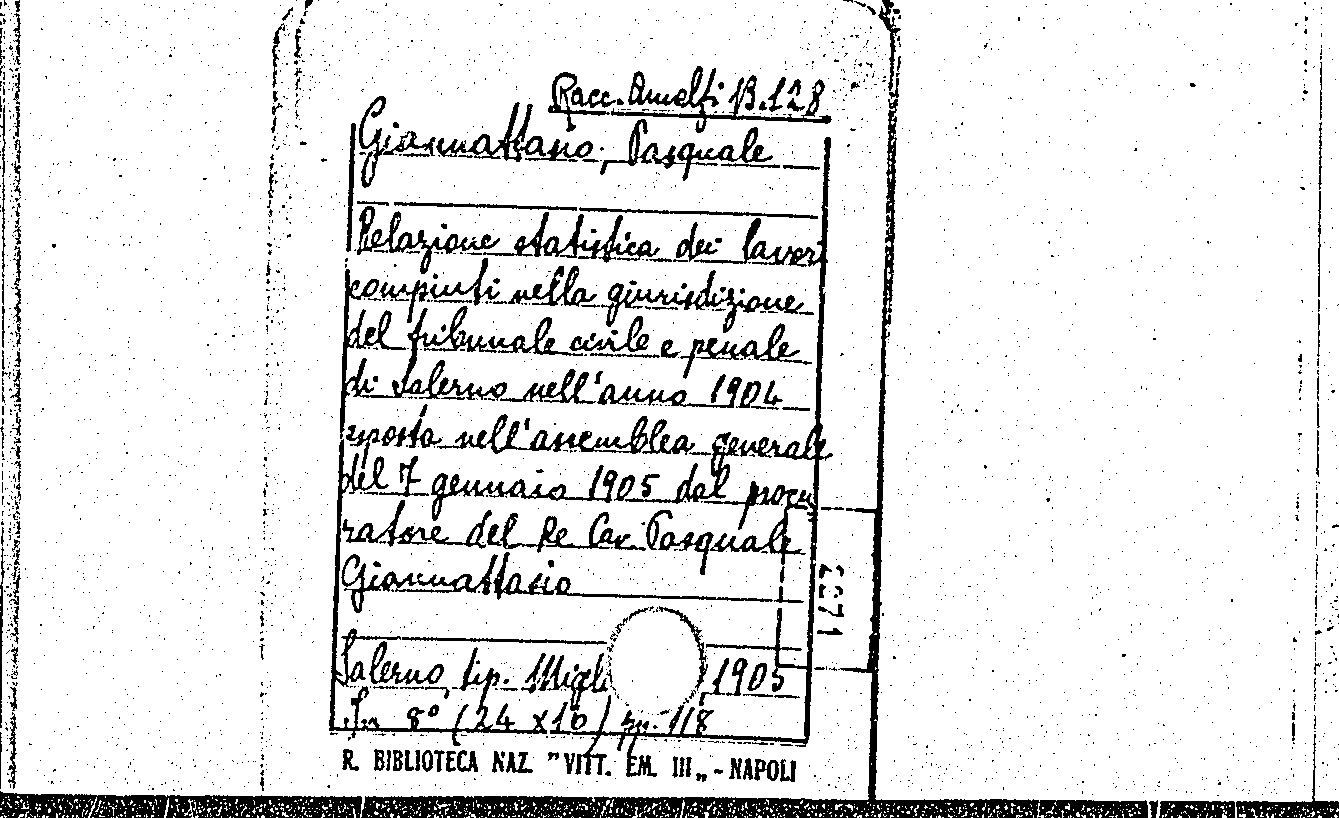 Racc. Amalfi B.128
Giannattasio, Pasquale
Relazione statistica dei lavori
compiuti nella giurisdizione
del tribunale civile e penale
di Salerno nell'anno 1904
esposta nell'assemblea generale
del 7 gennaio 1905 dal procu
ratore del Re Cav. Pasquale
Giannattasio
2271
Salerno, tip. Migl 1905
In 8° (24 x 16) pp. 118
R. BIBLIOTECA NAZ. "VITT. EM. III„ - NAPOLI